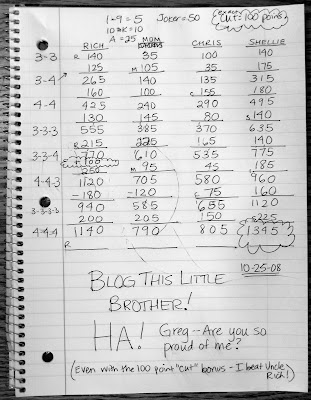 1-9 = 5 Joker = 50 (exact "Cut" = 100 points)
10→K = 10
A = 25
RICH MOM CHRIS SHELLIE
3-3 R 140 140 100 140
125 M 105 35 175
3-4 265 140 135 315
160 100 C 155 180
4-4 425 240 290 495
130 145 80 S 140
3-3-3 555 385 370 635
R 215 225 165 140
3-3-4 610 535 775
250 M 95 45 185
4-4-3 1120 705 580 960
-180 -120 C 75 160
3-3-3-3 940 585 655 1120
200 205 150 S 225
4-4-4 1140 790 805 1345
R
10-25-08
BLOG THIS LITTLE
BROTHER!
HA! Greg -- Are you so
proud of me?
(Even with the 100 point "cut" bonus - I beat Uncle
Rich!)